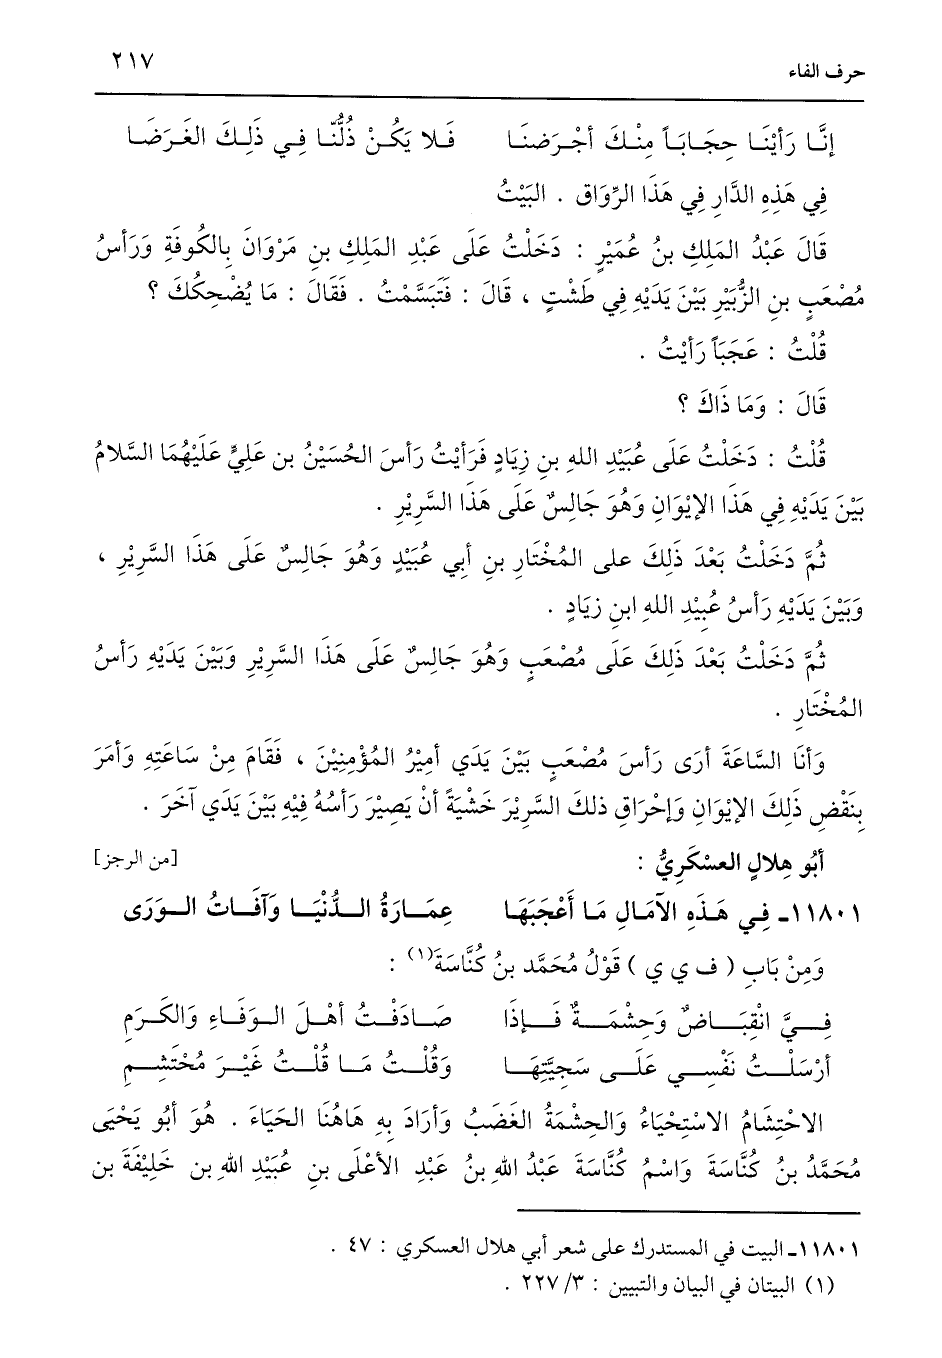 حرف الفاء ٢١٧
إنَّا رَأَيْنَا حِجَابَاً مِنْكَ أجْرَضنَا فَلا يَكُنْ ذُلُّنَا فِي ذَلِكَ الغَرَضَا
فِي هَذِهِ الدَّارِ فِي هَذَا الرِّوَاقِ . البَيْتُ
قَالَ عَبْدُ المَلِكِ بنُ عُمَيْرٍ : دَخَلْتُ عَلَى عَبْدِ المَلِكِ بنِ مَرْوَانَ بِالكُوفَةِ وَرَأسُ
مُصْعَبٍ بنِ الزُّبَيْرِ بَيْنَ يَدَيْهِ فِي طَشْتٍ ، قَالَ : فَتَبَسَّمْتُ . فَقَالَ : مَا يُضْحِكُكَ ؟
قُلْتُ : عَجَبَاً رَأيْتُ .
قَالَ : وَمَا ذَاكَ ؟
قُلْتُ : دَخَلْتُ عَلَى عُبَيْدِ اللهِ بنِ زِيَادٍ فَرَأيْتُ رَأسَ الحُسَيْنُ بن عَلِيٍّ عَلَيْهُمَا السَّلامُ
بَيْنَ يَدَيْهِ فِي هَذَا الإيْوَانِ وَهُوَ جَالِسٌ عَلَى هَذَا السَّرِيْرِ .
ثُمَّ دَخَلْتُ بَعْدَ ذَلِكَ على المُخْتَارِ بنِ أبِي عُبَيْدٍ وَهُوَ جَالِسٌ عَلَى هَذَا السَّرِيْرِ ،
وَبَيْنَ يَدَيْهِ رَأسُ عُبِيْدِ اللهِ ابنِ زِيَادٍ .
ثُمَّ دَخَلْتُ بَعْدَ ذَلِكَ عَلَى مُصْعَبٍ وَهُوَ جَالِسٌ عَلَى هَذَا السَّرِيْرِ وَبَيْنَ يَدَيْهِ رَأسُ
المُخْتَارِ .
وَأنَا السَّاعَةَ أرَى رَأسَ مُصْعَبٍ بَيْنَ يَدَي أمِيْرُ المُؤْمِنِيْنَ ، فَقَامَ مِنْ سَاعَتِهِ وَأمَرَ
بِنَقْضِ ذَلِكَ الإيْوَانِ وَإحْرَاقِ ذلكَ السَّرِيْرَ خَشْيَةً أنْ يَصِيْرَ رَأسُهُ فِيْهِ بَيْنَ يَدَي آخَرَ .
أبُو هِلالٍ العسْكَرِيُّ : [من الرجز]
١١٨٠١ـ فِي هَذِهِ الآمَالِ مَا أَعْجَبَهَا عِمَارَةُ الدُّنْيَا وَآفَاتُ الوَرَى
وَمِنْ بَابِ ( ف ي ي ) قَوْلُ مُحَمَّد بنُ كُنَّاسَةَ(١) :
فِيَّ انْقِبَاضٌ وَحِشْمَةٌ فَإذَا صَادَفْتُ أهْلَ الوَفَاءِ وَالكَرَمِ
أرْسَلْتُ نَفْسِي عَلَى سَجِيَّتِهَا وَقُلْتُ مَا قُلْتُ غَيْرَ مُحْتَشِمِ
الاحْتِشَامُ الاسْتِحْيَاءُ وَالحِشْمَةُ الغَضَبُ وَأرَادَ بِهِ هَاهُنَا الحَيَاءَ . هُوَ أبُو يَحْيَى
مُحَمَّدُ بنُ كُنَّاسَةَ وَاسْمُ كُنَّاسَةَ عَبْدُ اللهِ بنُ عَبْدِ الأعْلَى بنِ عُبَيْدِ اللهِ بن خَلِيْفَةَ بن
١١٨٠١ـ البيت في المستدرك على شعر أبي هلال العسكري : ٤٧ .
(١) البيتان في البيان والتبيين : ٣/ ٢٢٧ .